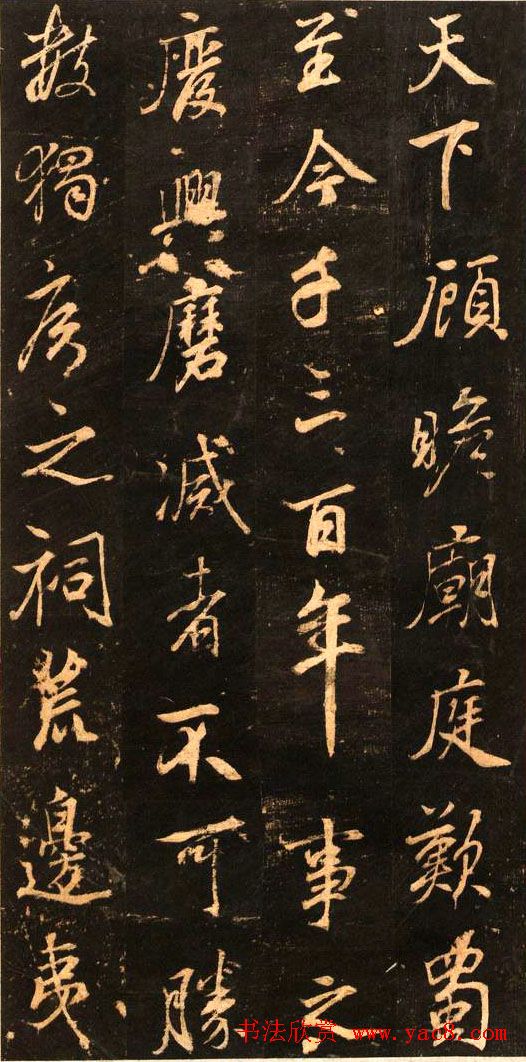 天下顧瞻廟庭歎蜀
至今千三百年事之
廢興磨滅者不可勝
數獨侯之祠荒邊夷
书法欣赏 www.yac8.com